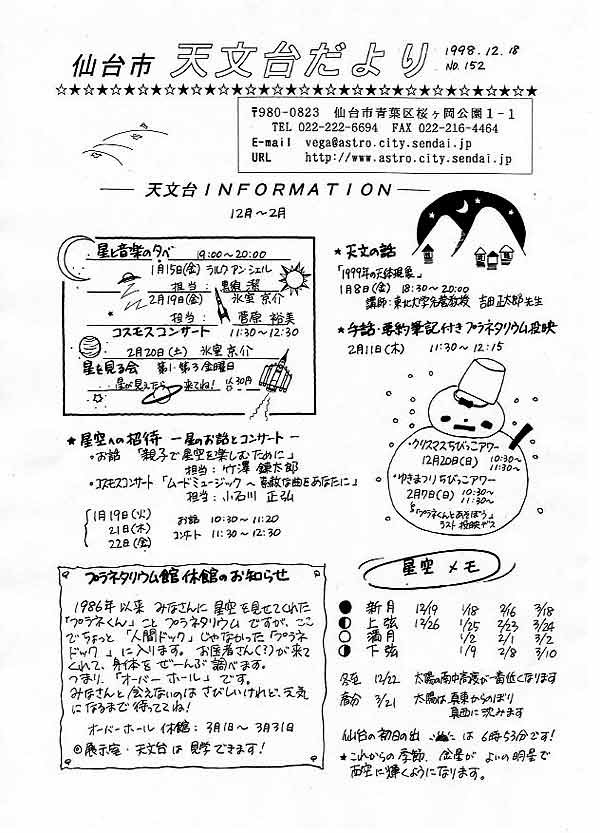 仙台市 天文台だより 1998.12.18
NO.152
〒980-0823 仙台市青葉区桜ヶ岡公園1-1
TEL 022-222-6694 FAX 022-216-4464
E-mail vega@astro.city.sendai.jp
URL http://www.astro.city.sendai.jp
天文台INFORMATION
12月〜2月
星と音楽の夕べ 19:00〜20:00
1月15日(金) ラルク アン シエル
担当:黒須 潔
2月19日(金) 氷室 京介
担当:菅原 裕美
コスモスコンサート 11:30〜12:30
2月20日(土) 氷室 京介
星を見る会 第1・第3金曜日
星が見えたら 来てね!
★天文の話
「1999年の天体現象」
1月8日(金) 18:30〜20:00
講師:東北大学名誉教授 吉田正太郎先生
★手話・要約筆記付きプラネタリウム投映
2月11日(木) 11:30〜12:15
・クリスマスちびっこアワー
12月20日(日) 10:30〜
11:30〜
・ゆきまつりちびっこアワー
2月7日(日) 10:30〜
11:30〜
「プラネくんとあそぼう」
ラスト投映デス
★星空への招待 ー星のお話とコンサートー
・お話 「親子で星空を楽しむために」
担当:竹澤 錬太郎
・コスモスコンサート「ムードミュージック〜素敵な曲をあなたに」
担当:小石川 正弘
1月19日(火)
21日(木)
22日(金)
お話 10:30〜11:20
コンサート 11:30〜12:30
プラネタリウム館 休館のお知らせ
1986年以来 みなさんに星空を見せてくれた
「プラネくん」こと プラネタリウム ですが、ここ
でちょっと「人間ドック」じゃなかった「プラネ
ドック」に入ります。お医者さん(?)が来て
くれて、身体をぜーんぶ調べます。
つまり、「オーバーホール」です。
みなさんと会えないのは さびしいけれど、元気
になるまで待っててね!
オーバーホール 休館: 3月1日〜3月31日
◎展示室・天文台は見学できます!
星空メモ
● 新月 12/19 1/18 2/16 3/18
◐ 上弦 12/26 1/25 2/23 3/24
○ 満月 1/2 2/1 3/2
◑ 下弦 1/9 2/8 3/10
冬至 12/22 太陽の南中高度が一番低くなります
春分 3/21 太陽は真東からのぼり
真西に沈みます
仙台の初日の出 は 6時53分です!
★これからの季節、金星が よいの明星で
西空に輝くようになります。